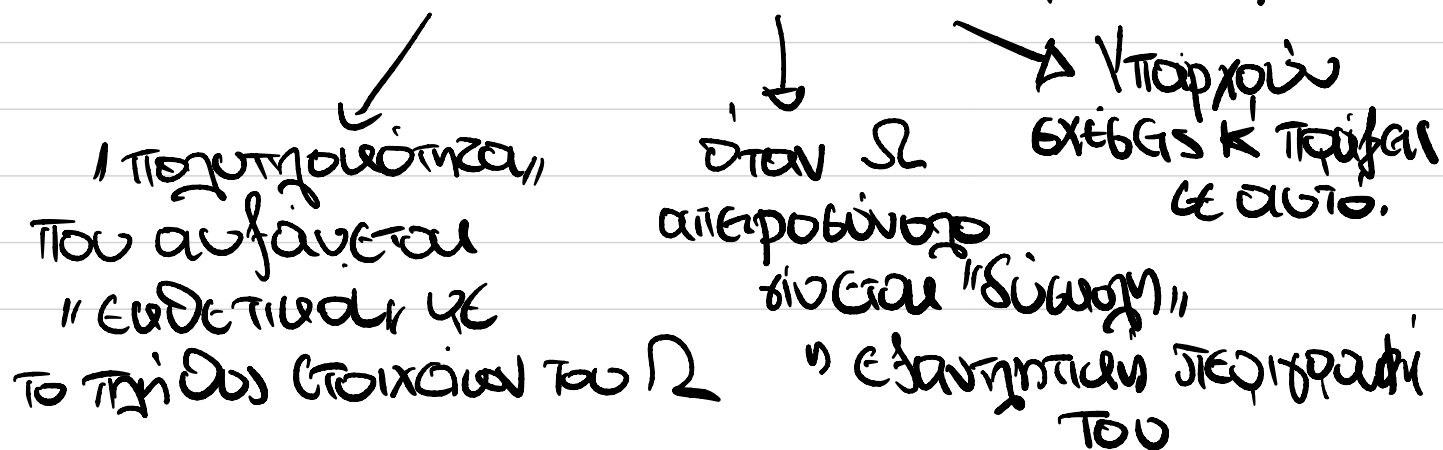 "πολυπλοκότητα"
που αυξάνεται
"εκθετικά" με
το πλήθος στοιχείων του Ω
όταν Ω
απειροσύνολο
γίνεται "δύσκολη"
η εξαντλητική περιγραφή
του
Υπάρχουν
σχέσεις κ πράξεις
σε αυτό.